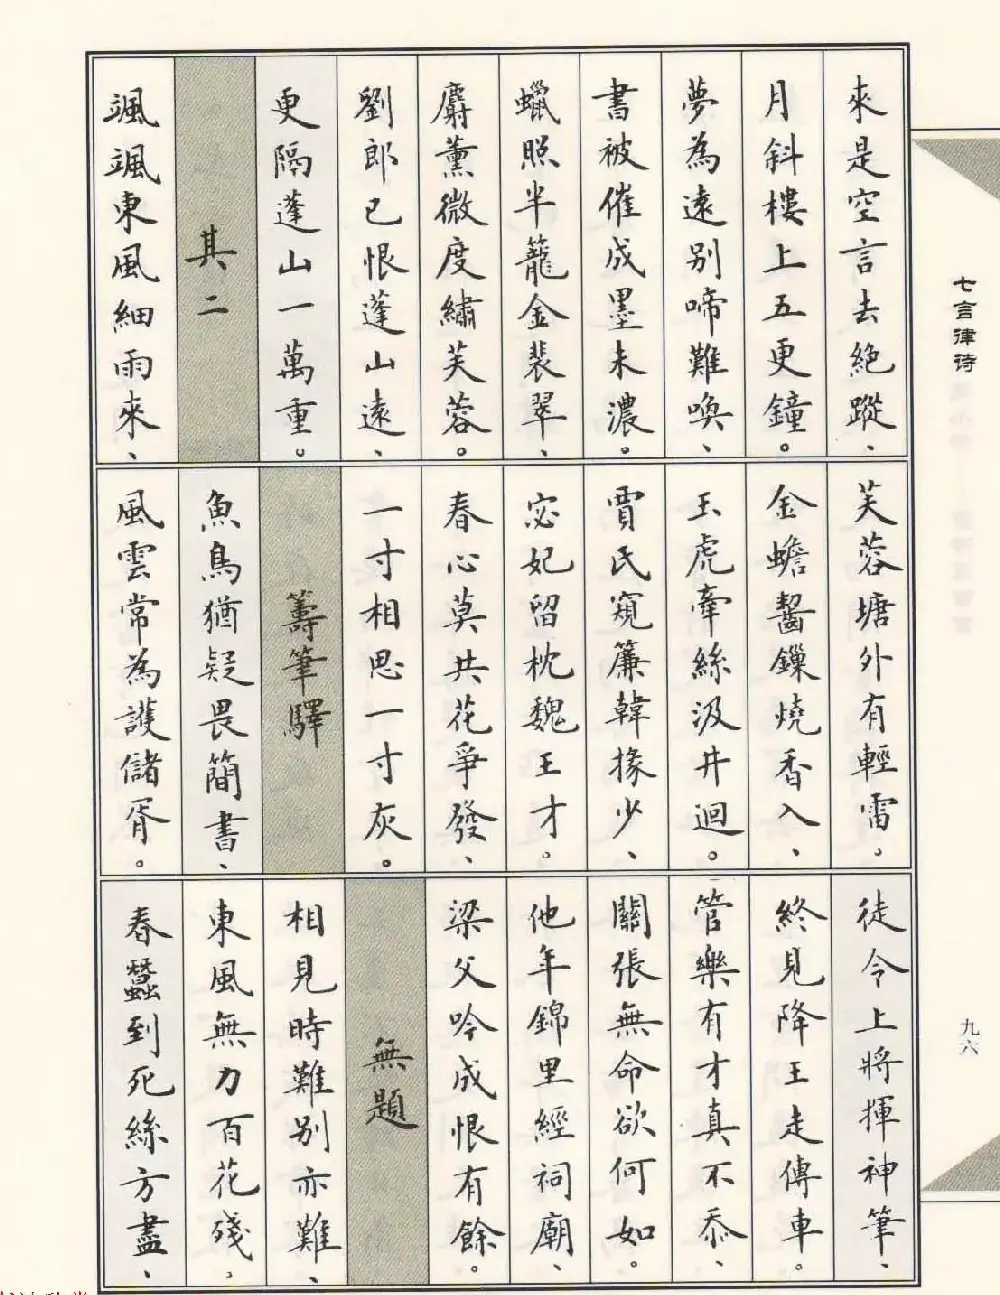 來是空言去絕蹤、
月斜樓上五更鐘。
夢為遠別啼難喚、
書被催成墨未濃。
蠟照半籠金裴翠、
麝薰微度繡芙蓉。
劉郎已恨蓬山遠、
更隔蓬山一萬重。
其二
颯颯東風細雨來、
芙蓉塘外有輕雷。
金蟾齧鏁燒香入、
玉虎牽絲汲井迴。
賈氏窺簾韓掾少、
宓妃留枕魏王才。
春心莫共花爭發、
一寸相思一寸灰。
籌筆驛
魚鳥猶疑畏簡書、
風雲常為護儲胥。
徒令上將揮神筆、
終見降王走傳車。
管樂有才真不忝、
關張無命欲何如。
他年錦里經祠廟、
梁父吟成恨有餘。
無題
相見時難別亦難、
東風無力百花殘,
春蠶到死絲方盡、
七言律诗
九六